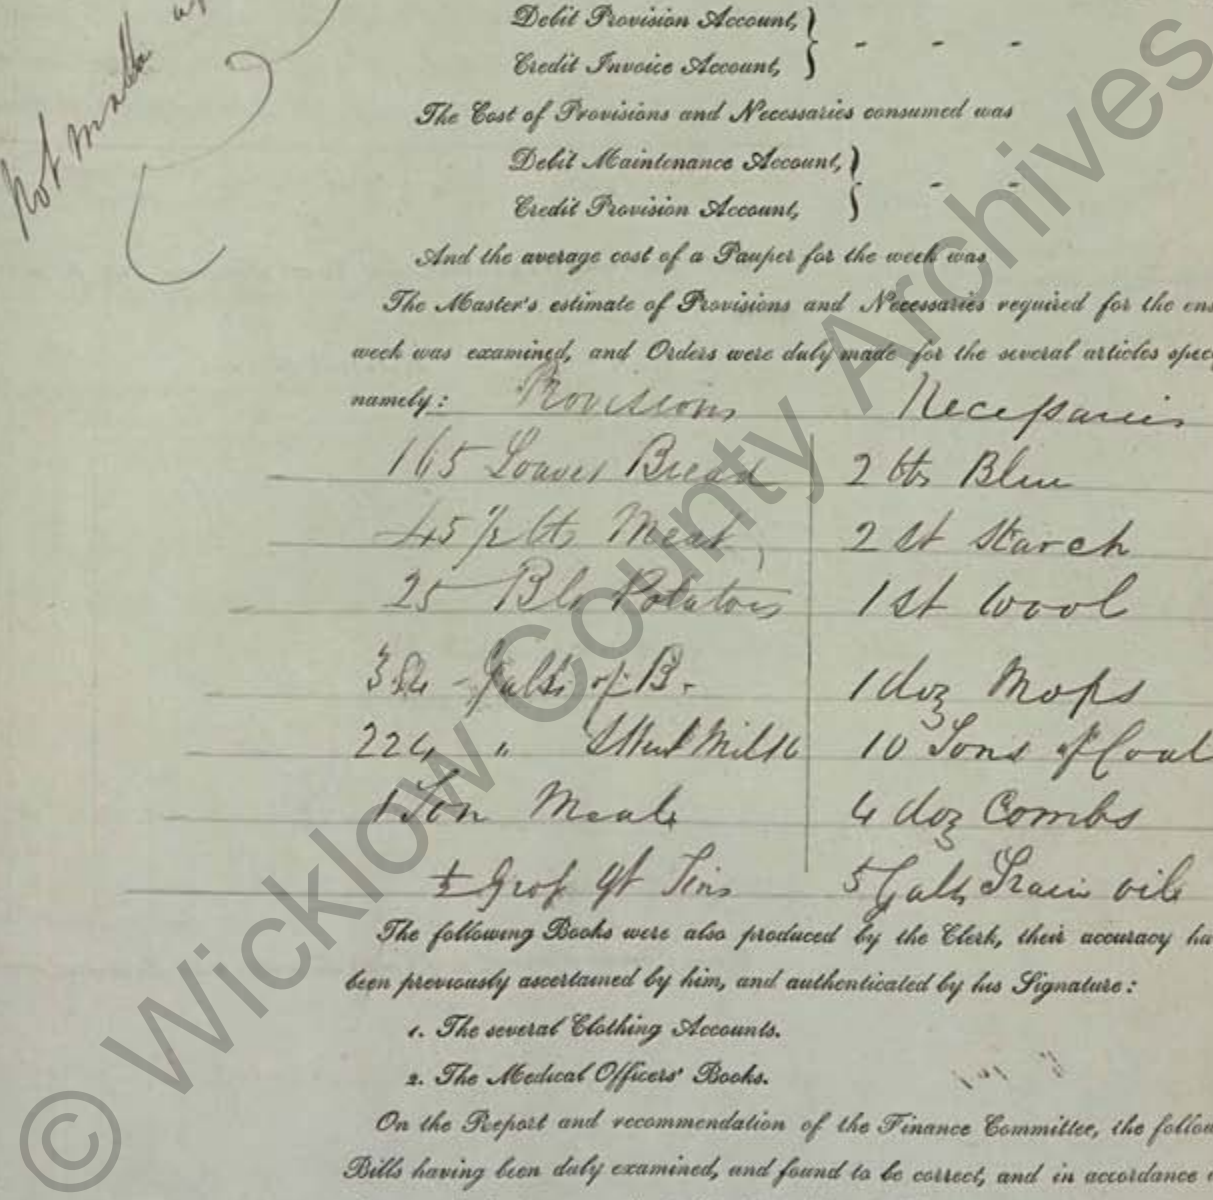 Not made up
Debit Provision Account,
Credit Invoice Account, } - - -
The Cost of Provisions and Necessaries consumed was
Debit Maintenance Account,
Credit Provision Account, } - -
And the average cost of a Pauper for the week was
The Master's estimate of Provisions and Necessaries required for the ens
week was examined, and Orders were duly made for the several articles spec
namely: Provisions Necessaries
165 Loaves Bread 2 lbs Blue
45 1/2 lbs Meat 2 St Starch
25 Bls Potatoes 1 St Wool
Galls of B. 1 doz Mops
224 " Milk 10 Tons of Coal
1 Ton Meal 4 doz Combs
1/2 Gross Tins 5 Galls Train oil
The following Books were also produced by the Clerk, their accuracy ha
been previously ascertained by him, and authenticated by his Signature:
1. The several Clothing Accounts.
2. The Medical Officers' Books.
On the Report and recommendation of the Finance Committee, the follow
Bills having been duly examined, and found to be correct, and in accordance
© Wicklow County Archives